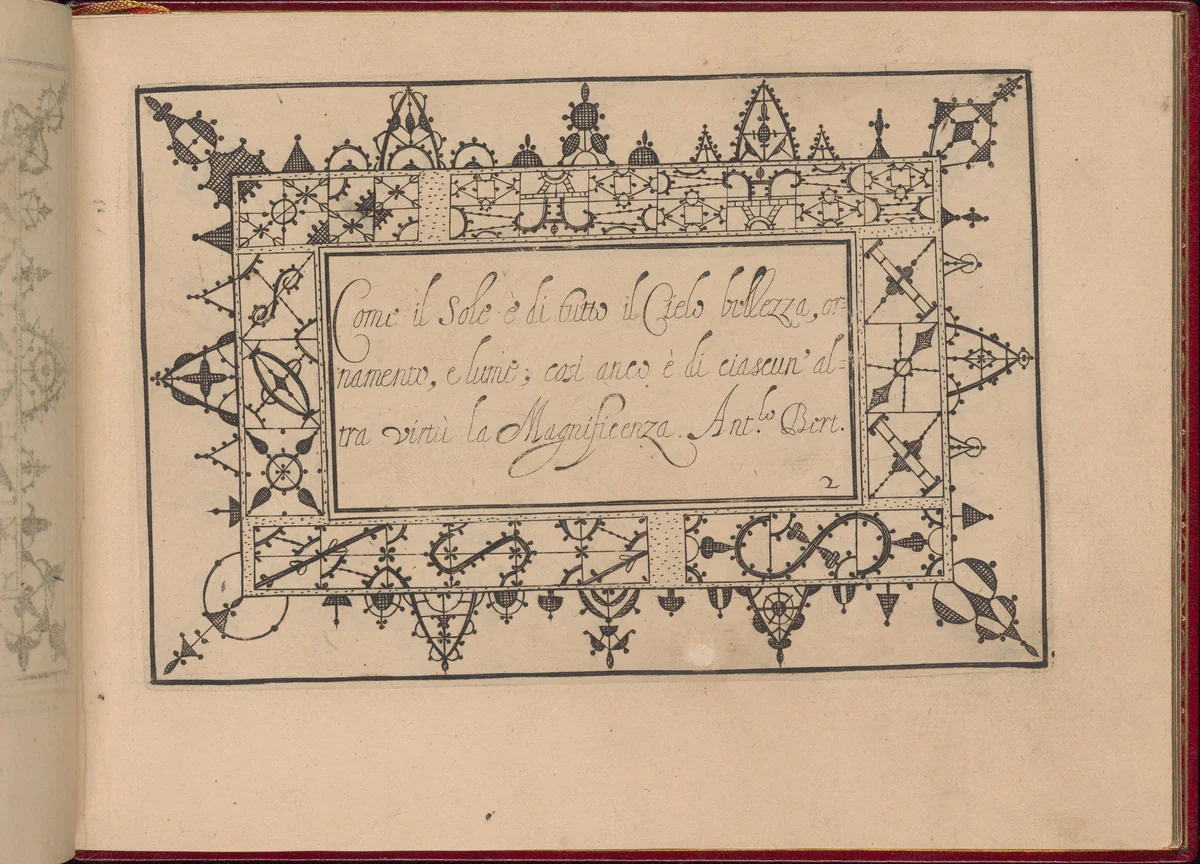 Come il Sole è di tutto il Cielo bellezza, or-
namento, e lume; cosi anco è di ciascun' al-
tra virtù la Magnificenza. Ant.lo Bert.
2